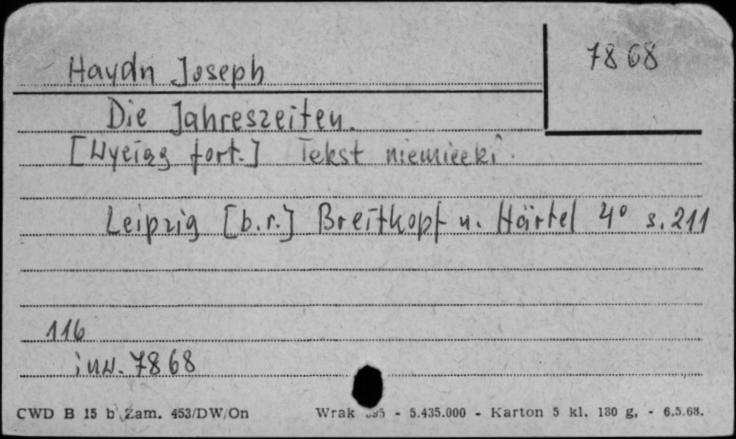 7868
Haydn Joseph
Die Jahreszeiten.
[Wyciąg fort.] Tekst niemiecki.
Leipzig [b.r.] Breitkopf u. Härtel 4° s. 211
116
inw. 7868
CWD B 15 b Zam. 453/DW/On Wrak - 5.435.000 - Karton 5 kl. 180 g. - 6.5.68.